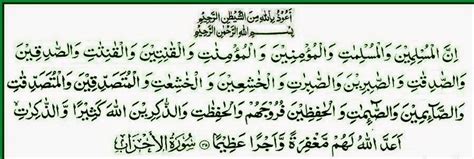 اَعُوْذُ بِاللّٰهِ مِنَ الشَّيْطٰنِ الرَّجِيْمِ
بِسْمِ اللّٰهِ الرَّحْمٰنِ الرَّحِيْمِ
اِنَّ الْمُسْلِمِيْنَ وَالْمُسْلِمٰتِ وَالْمُؤْمِنِيْنَ وَالْمُؤْمِنٰتِ وَالْقٰنِتِيْنَ وَالْقٰنِتٰتِ وَالصّٰدِقِيْنَ
وَالصّٰدِقٰتِ وَالصّٰبِرِيْنَ وَالصّٰبِرٰتِ وَالْخٰشِعِيْنَ وَالْخٰشِعٰتِ وَالْمُتَصَدِّقِيْنَ وَالْمُتَصَدِّقٰتِ
وَالصَّآئِمِيْنَ وَالصّٰٓئِمٰتِ وَالْحٰفِظِيْنَ فُرُوْجَهُمْ وَالْحٰفِظٰتِ وَالذّٰكِرِيْنَ اللّٰهَ كَثِيْرًا وَّالذّٰكِرٰتِ
اَعَدَّ اللّٰهُ لَهُمْ مَّغْفِرَةً وَّاَجْرًا عَظِيْمًا ﴿۳۵﴾ سُوْرَةُ الْاَحْزَابِ